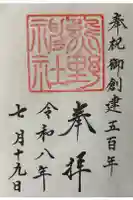 奉祝御創建五百年
熊野神社
奉拝
令和八年
七月十九日